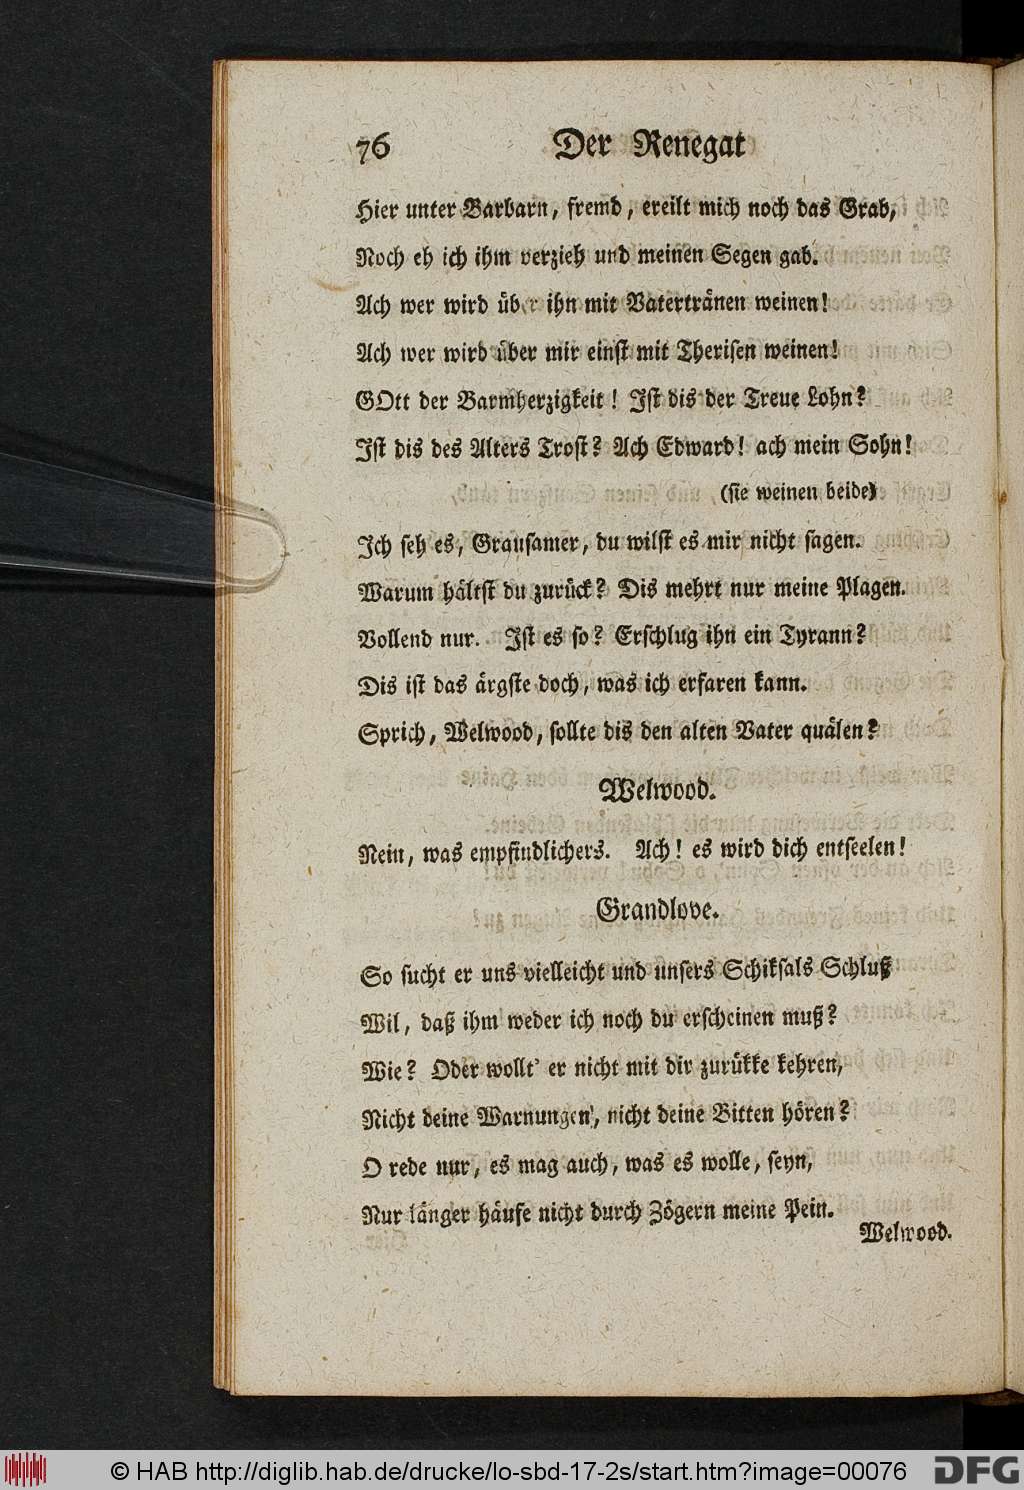 76 Der Renegat
Hier unter Barbarn, fremd, ereilt mich noch das Grab,
Noch eh ich ihm verzieh und meinen Segen gab.
Ach wer wird über ihn mit Vatertränen weinen!
Ach wer wird über mir einst mit Therisen weinen!
GOtt der Barmherzigkeit! Ist dis der Treue Lohn?
Ist dis des Alters Trost? Ach Edward! ach mein Sohn!
(sie weinen beide)
Ich seh es, Grausamer, du wilst es mir nicht sagen.
Warum hältst du zurück? Dis mehrt nur meine Plagen.
Vollend nur. Ist es so? Erschlug ihn ein Tyrann?
Dis ist das ärgste doch, was ich erfaren kann.
Sprich, Welwood, sollte dis den alten Vater quälen?
Welwood.
Nein, was empfindlichers. Ach! es wird dich entseelen!
Grandlove.
So sucht er uns vielleicht und unsers Schiksals Schluß
Wil, daß ihm weder ich noch du erscheinen muß?
Wie? Oder wollt' er nicht mit dir zurükke kehren,
Nicht deine Warnungen, nicht deine Bitten hören?
O rede nur, es mag auch, was es wolle, seyn,
Nur länger häufe nicht durch Zögern meine Pein.
Welwood.
© HAB http://diglib.hab.de/drucke/lo-sbd-17-2s/start.htm?image=00076
DFG